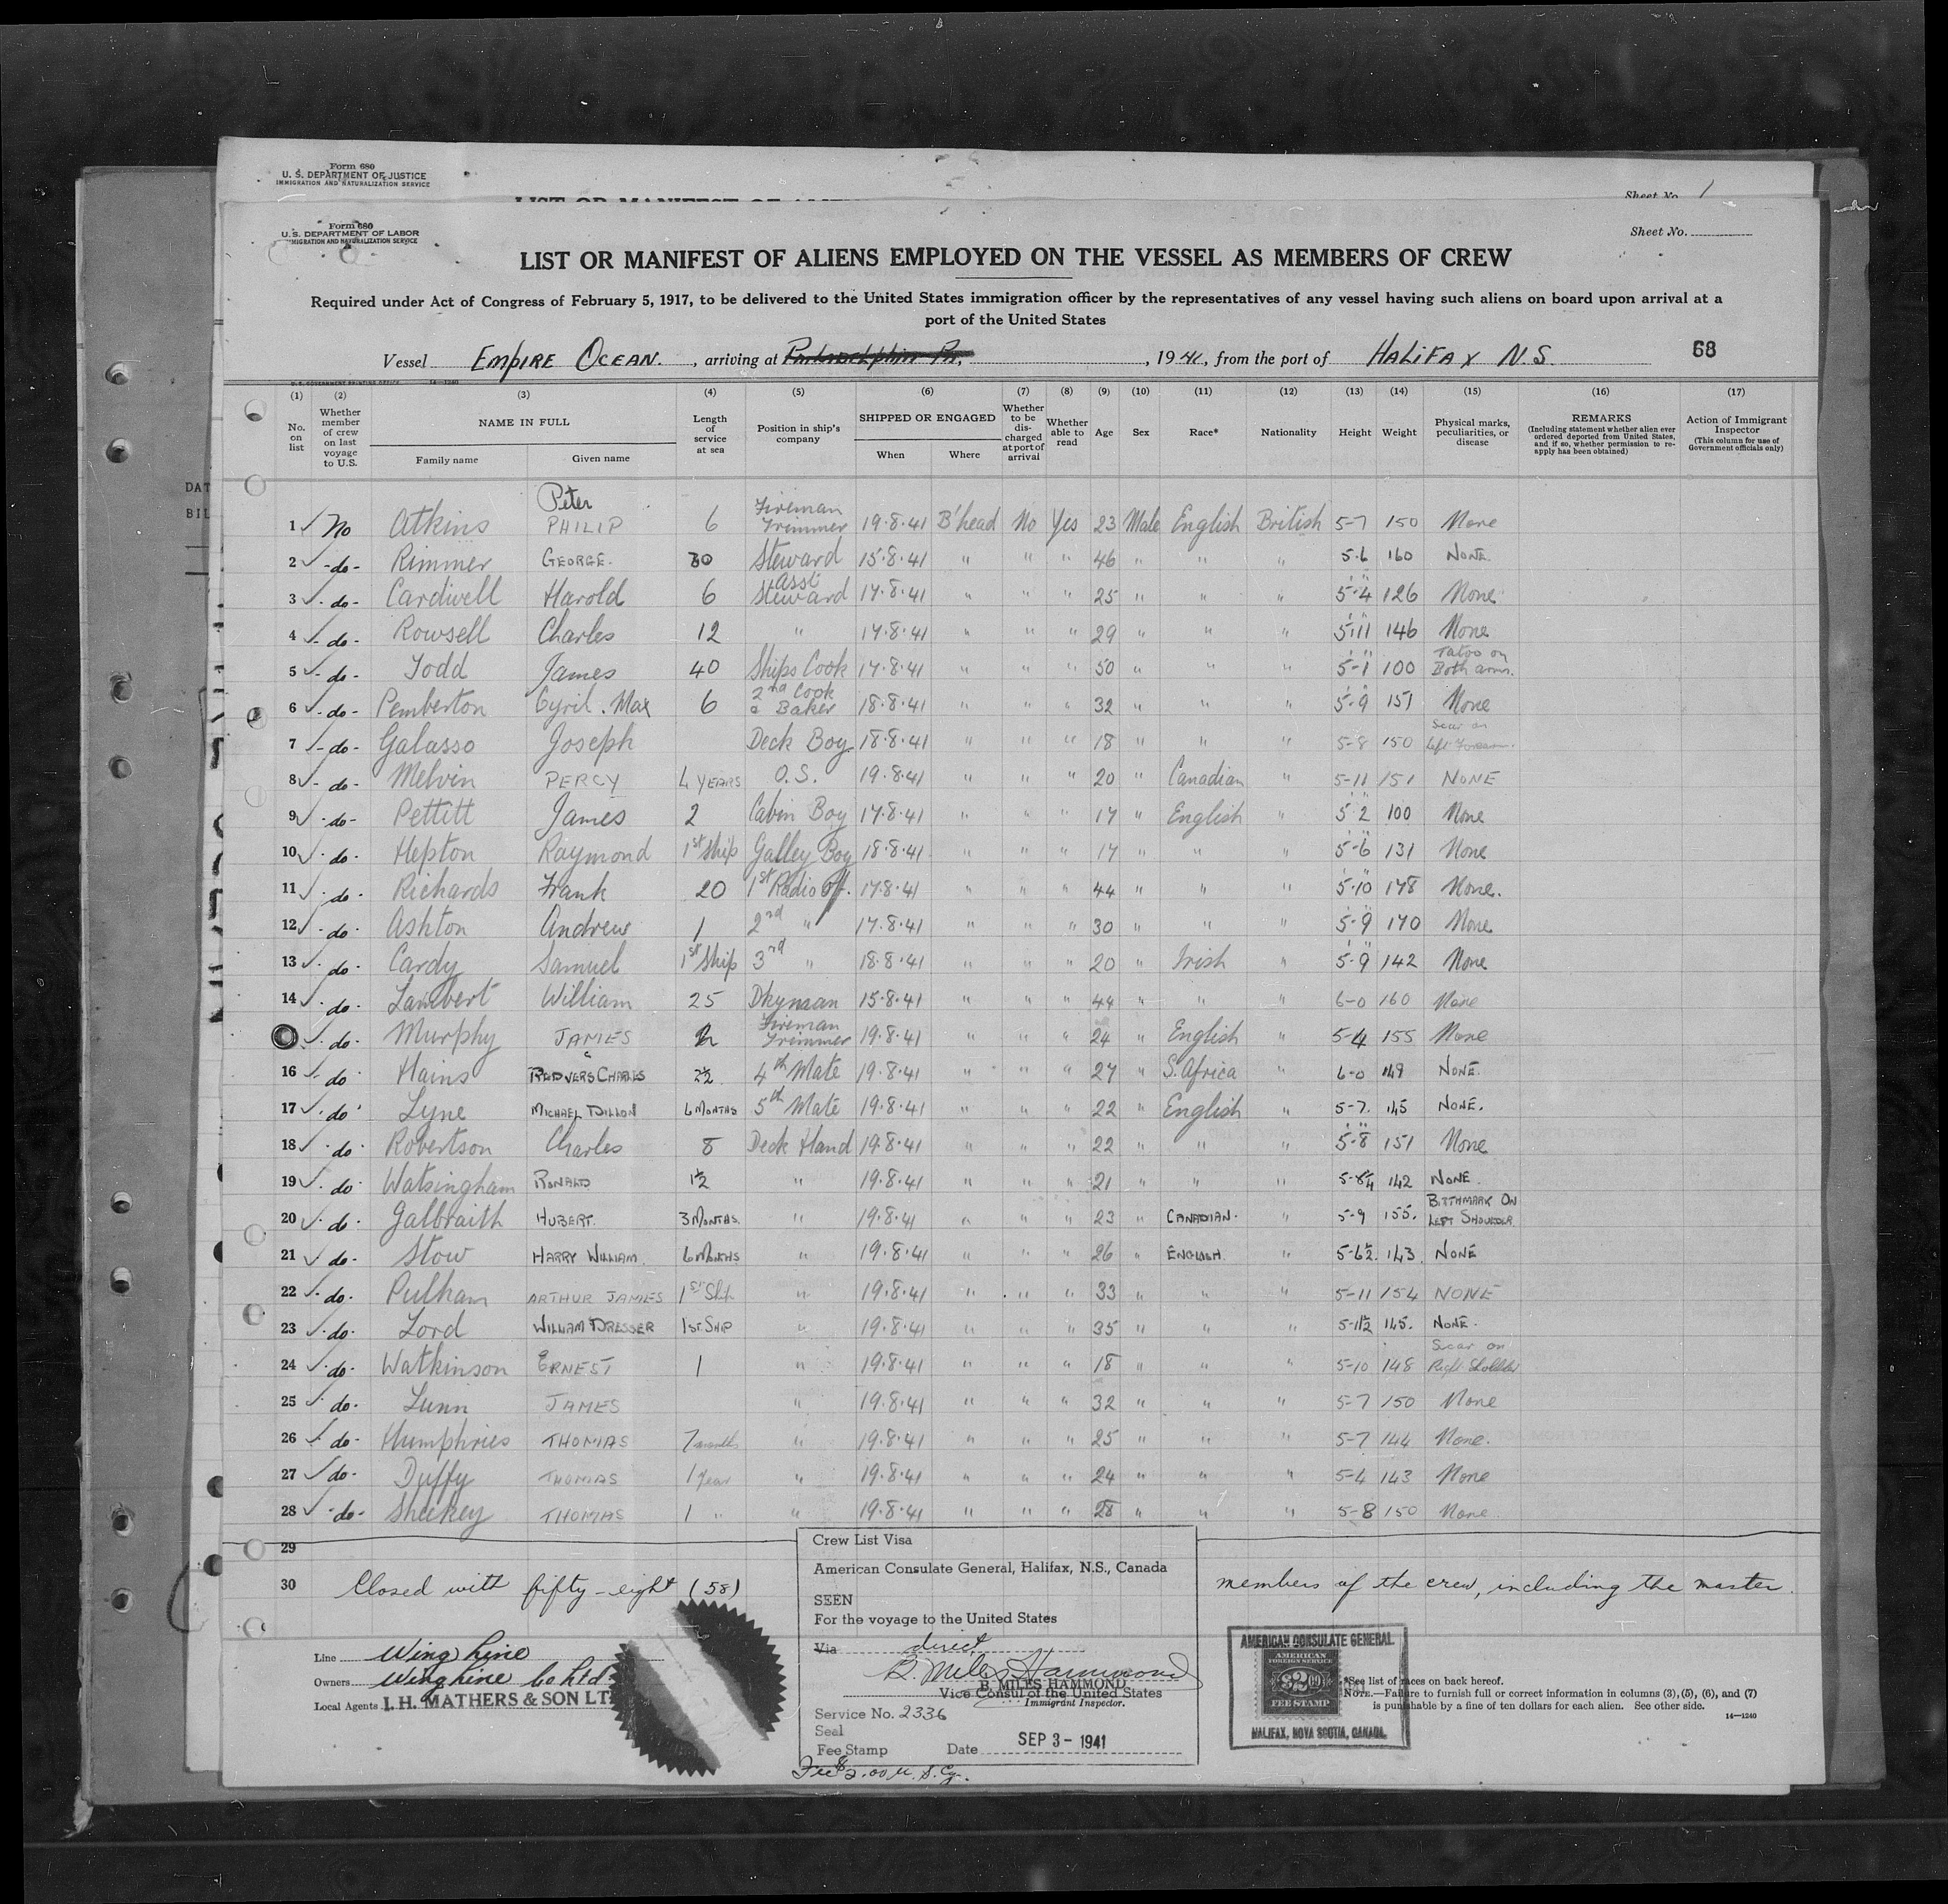 Form 680
U. S. DEPARTMENT OF JUSTICE
IMMIGRATION AND NATURALIZATION SERVICE
Sheet No. 1
Form 680
U. S. DEPARTMENT OF LABOR
IMMIGRATION AND NATURALIZATION SERVICE
Sheet No.
LIST OR MANIFEST OF ALIENS EMPLOYED ON THE VESSEL AS MEMBERS OF CREW
Required under Act of Congress of February 5, 1917, to be delivered to the United States immigration officer by the representatives of any vessel having such aliens on board upon arrival at a
port of the United States
Vessel EMPIRE OCEAN. , arriving at , 1941, from the port of HALIFAX N.S. 68
U. S. GOVERNMENT PRINTING OFFICE 14—1240
(1) (2) (3) (4) (5) (6) (7) (8) (9) (10) (11) (12) (13) (14) (15) (16) (17)
No. on list
Whether member of crew on last voyage to U.S.
NAME IN FULL
Family name
Given name
Length of service at sea
Position in ship's company
SHIPPED OR ENGAGED
When
Where
Whether to be discharged at port of arrival
Whether able to read
Age
Sex
Race*
Nationality
Height
Weight
Physical marks, peculiarities, or disease
REMARKS
(Including statement whether alien ever ordered deported from United States, and if so, whether permission to reapply has been obtained)
Action of Immigrant Inspector
(This column for use of Government officials only)
DAT
BIL
1 ✓ No Atkins Peter PHILIP 6 Fireman Trimmer 19.8.41 B'head No Yes 23 Male English British 5-7 150 None
2 ✓ -do- Rimmer GEORGE. 30 Steward 15.8.41 " " " 46 " " " 5-6 160 NONE.
3 ✓ -do- Cardwell Harold 6 Asst Steward 17.8.41 " " " 25 " " " 5-4 126 None
4 ✓ -do- Rowsell Charles 12 " 17.8.41 " " " 29 " " " 5-11 146 None
5 ✓ -do- Todd James 40 Ships Cook 17.8.41 " " " 50 " " " 5-1 100 Tatoo on Both arms.
6 ✓ -do- Pemberton Cyril. Max 6 2nd Cook & Baker 18.8.41 " " " 32 " " " 5-9 151 None
7 ✓ -do- Galasso Joseph Deck Boy 18.8.41 " " " 18 " " " 5-8 150 Scar on Left Forearm.
8 ✓ -do- Melvin PERCY 4 YEARS O.S. 19.8.41 " " " 20 " Canadian " 5-11 151 NONE
9 ✓ -do- Pettitt James 2 Cabin Boy 17.8.41 " " " 17 " English " 5-2 100 None
10 ✓ -do- Hepton Raymond 1st Ship Galley Boy 18.8.41 " " " 17 " " " 5-6 131 None
11 ✓ -do- Richards Frank 20 1st Radio Off. 17.8.41 " " " 44 " " " 5-10 178 None.
12 ✓ -do- Ashton Andrew 1 2nd " 17.8.41 " " " 30 " " " 5-9 170 None
13 ✓ -do- Cardy Samuel 1st Ship 3rd " 18.8.41 " " " 20 " Irish " 5-9 142 None
14 ✓ -do- Lambert William 25 Dkyman 15.8.41 " " " 44 " " " 6-0 160 None
✓ -do- Murphy JAMES Fireman Trimmer 19.8.41 " " " 24 " English " 5-4 155 None
16 ✓ -do- Hains REDVERS CHARLES 2½ 4th Mate 19.8.41 " " " 27 " S. Africa " 6-0 149 NONE.
17 ✓ -do- Lyne MICHAEL DILLON 6 MONTHS 5th Mate 19.8.41 " " " 22 " English " 5-7. 145 NONE.
18 ✓ -do- Robertson Charles 8 Deck Hand 19.8.41 " " " 22 " " " 5-8 151 None
19 ✓ -do- Watsingham RONALD 1½ " 19.8.41 " " " 21 " " " 5-8¼ 142 NONE.
20 ✓ -do- Galbraith HUBERT. 3 MONTHS. " 19.8.41 " " " 23 " CANADIAN. " 5-9 155. BIRTHMARK ON LEFT SHOULDER.
21 ✓ -do- Stow HARRY WILLIAM. 6 MONTHS " 19.8.41 " " " 26 " ENGLISH. " 5-6½. 143. NONE
22 ✓ -do- Pulham ARTHUR JAMES 1st Ship " 19.8.41 " " " 33 " " " 5-11 154 NONE
23 ✓ -do- Lord WILLIAM DRESSER 1ST SHIP " 19.8.41 " " " 35 " " " 5-11½ 145. NONE.
24 ✓ -do- Watkinson ERNEST 1 " 19.8.41 " " " 18 " " " 5-10 148 Scar on Right Shoulder
25 ✓ -do- Lunn JAMES " 19.8.41 " " " 32 " " " 5-7 150 None
26 ✓ -do- Humphries THOMAS 7 months " 19.8.41 " " " 25 " " " 5-7 144 None.
27 ✓ -do- Duffy THOMAS 1 Year " 19.8.41 " " " 24 " " " 5-4 143 None
28 ✓ -do- Sheekey THOMAS 1 " " 19.8.41 " " " 28 " " " 5-8 150 None.
29
30 Closed with fifty-eight (58) members of the crew, including the master.
Crew List Visa
American Consulate General, Halifax, N.S., Canada
SEEN
For the voyage to the United States
Via direct
B. Miles Hammond
B. MILES HAMMOND
Vice Consul of the United States
Immigrant Inspector.
Service No. 2336
Seal
Fee Stamp Date SEP 3 - 1941
Fee $2.00 U.S. Cy.
Line Wing Line
Owners Wing Line Co Ltd
Local Agents I. H. MATHERS & SON LT
AMERICAN CONSULATE GENERAL
AMERICAN
FOREIGN SERVICE
$2.00
FEE STAMP
HALIFAX, NOVA SCOTIA, CANADA.
*See list of races on back hereof.
NOTE.—Failure to furnish full or correct information in columns (3), (5), (6), and (7)
is punishable by a fine of ten dollars for each alien. See other side.
14—1240